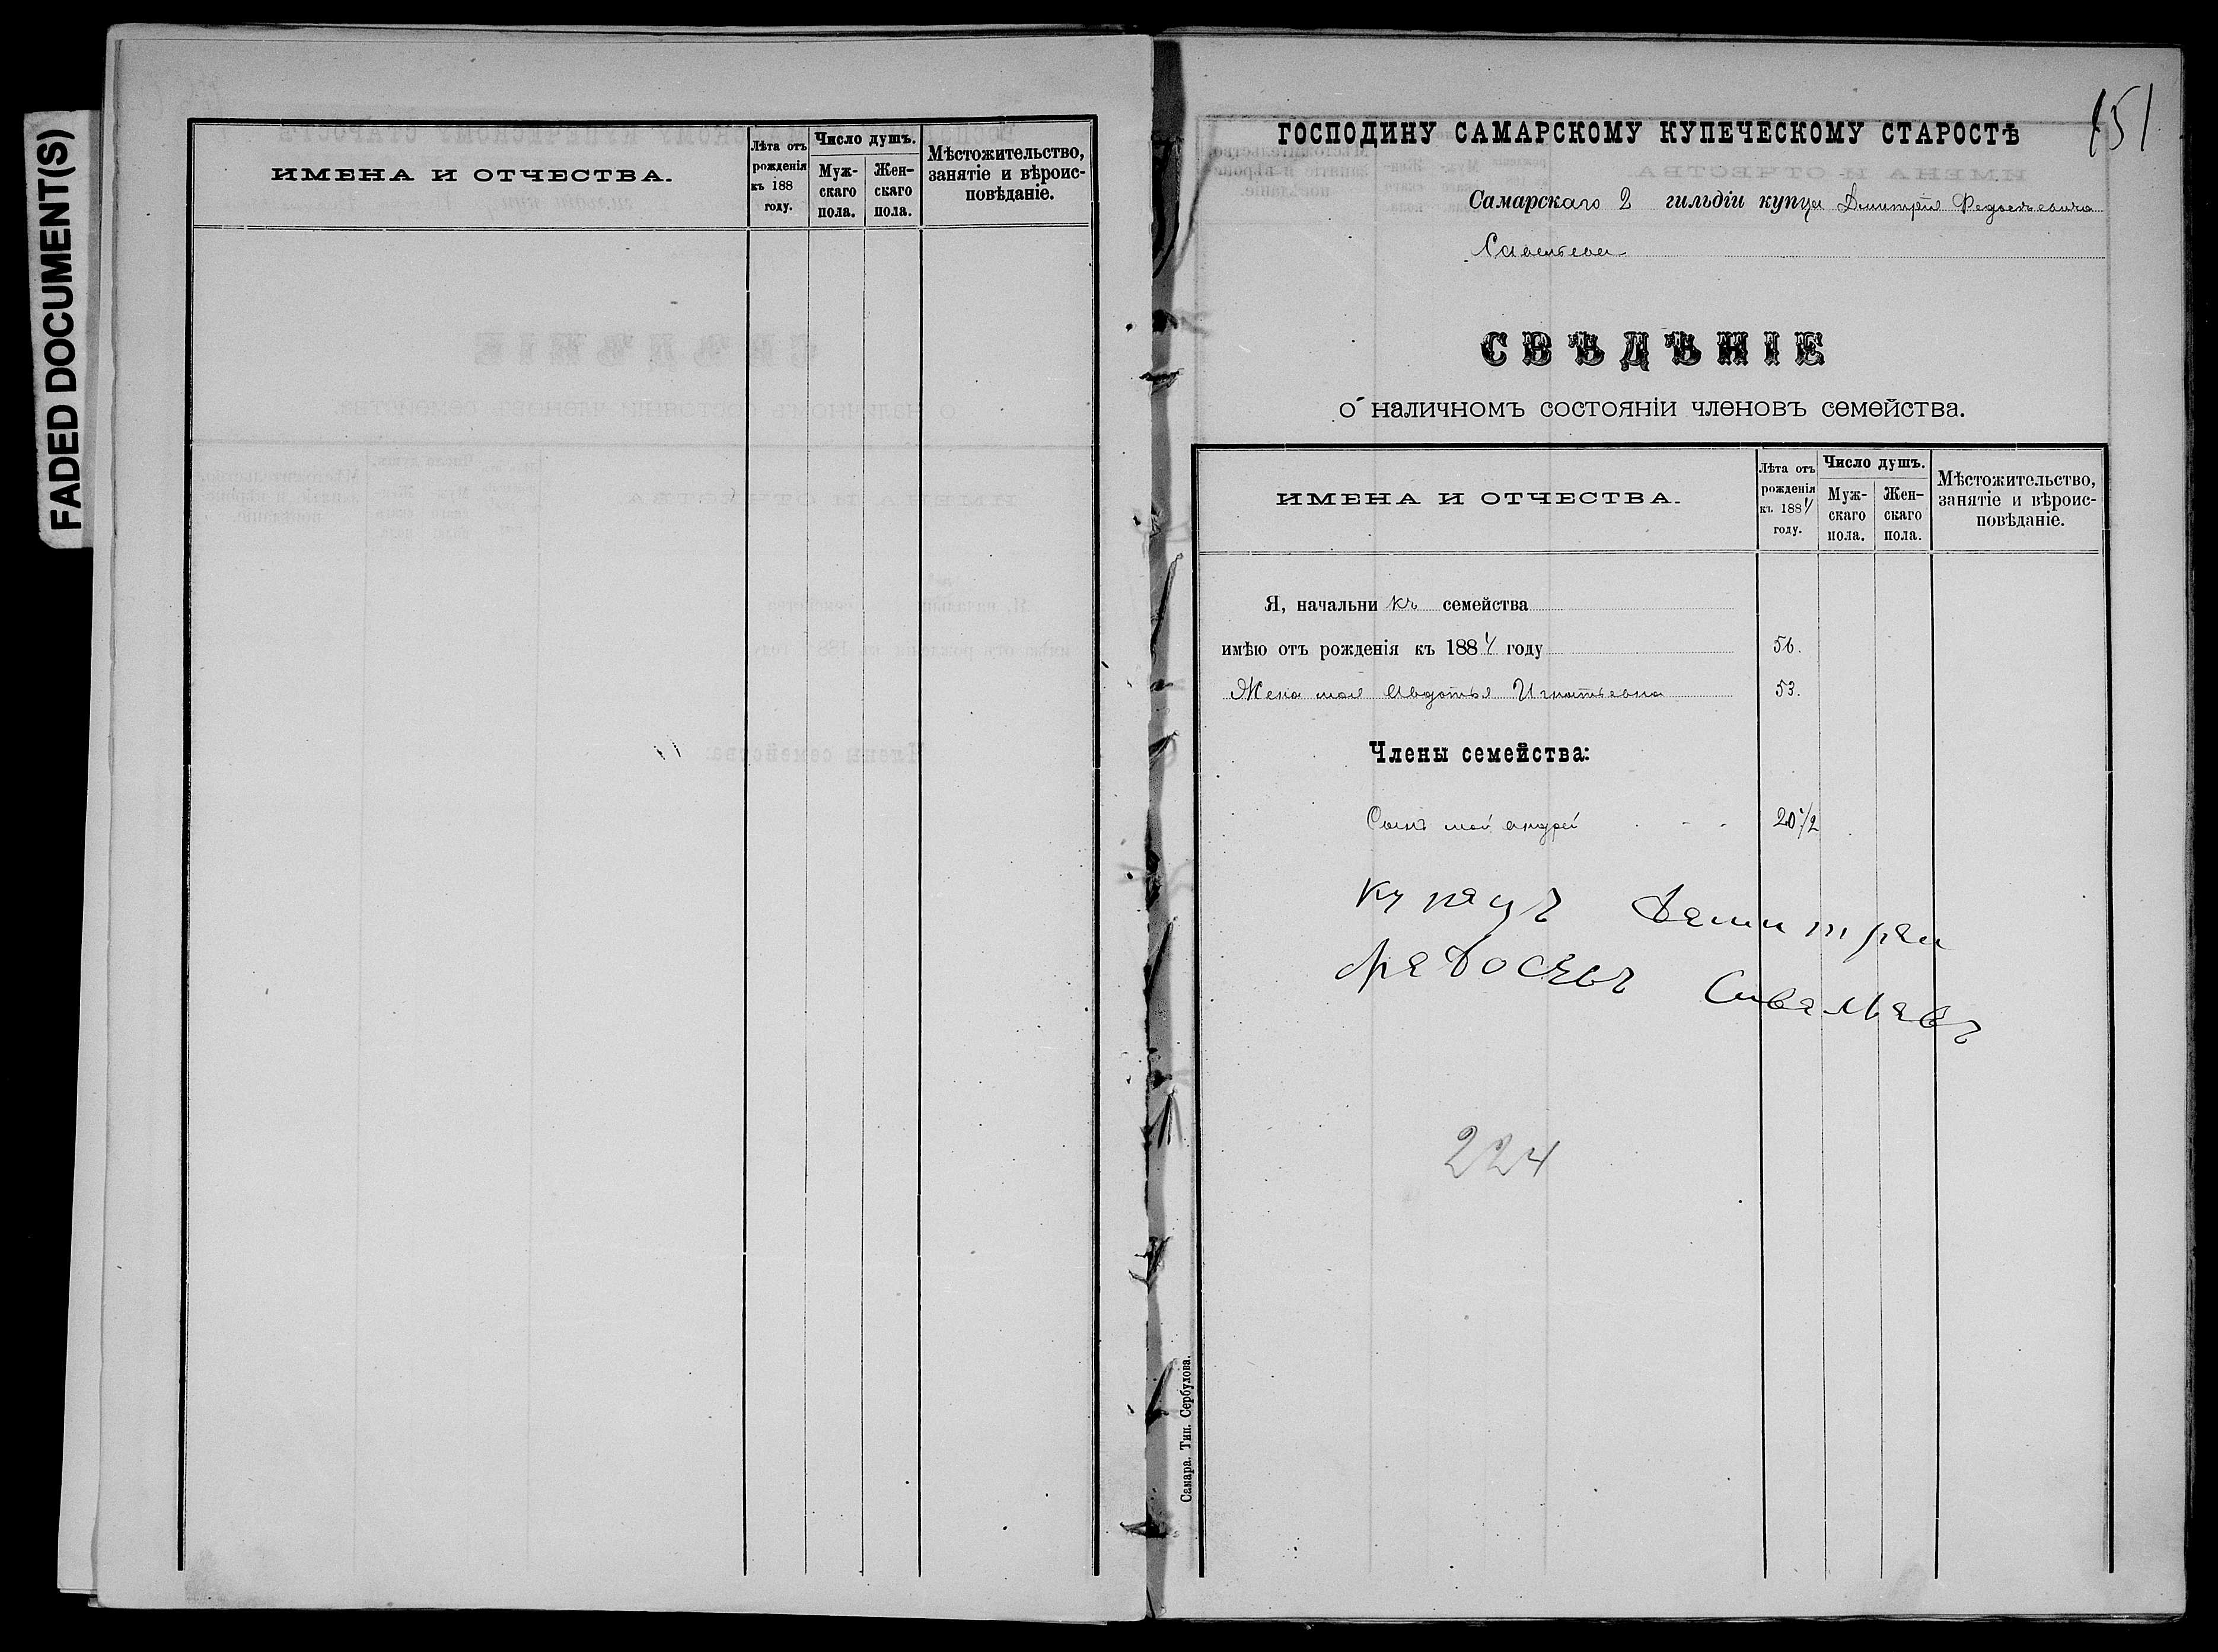 FADED DOCUMENT(S)
ИМЕНА И ОТЧЕСТВА.
Лѣта отъ рожденія къ 188 году.
Число душъ.
Муж-скаго пола.
Жен-скаго пола.
Мѣстожительство, занятіе и вѣроис-повѣданіе.
151
ГОСПОДИНУ САМАРСКОМУ КУПЕЧЕСКОМУ СТАРОСТѢ
Самарскаго 2 гильдіи купца Дмитрія Федосѣевича
Савельева
СВѢДѢНІЕ
о наличномъ состояніи членовъ семейства.
ИМЕНА И ОТЧЕСТВА.
Лѣта отъ рожденія къ 1884 году.
Число душъ.
Муж-скаго пола.
Жен-скаго пола.
Мѣстожительство, занятіе и вѣроис-повѣданіе.
Я, начальникъ семейства
имѣю отъ рожденія къ 1884 году 56.
Жена моя Авдотья Игнатьевна 53.
Члены семейства:
Сынъ мой андрей 20 1/2
Купецъ
Савельевъ
224
Самара. Тип. Сербулова.